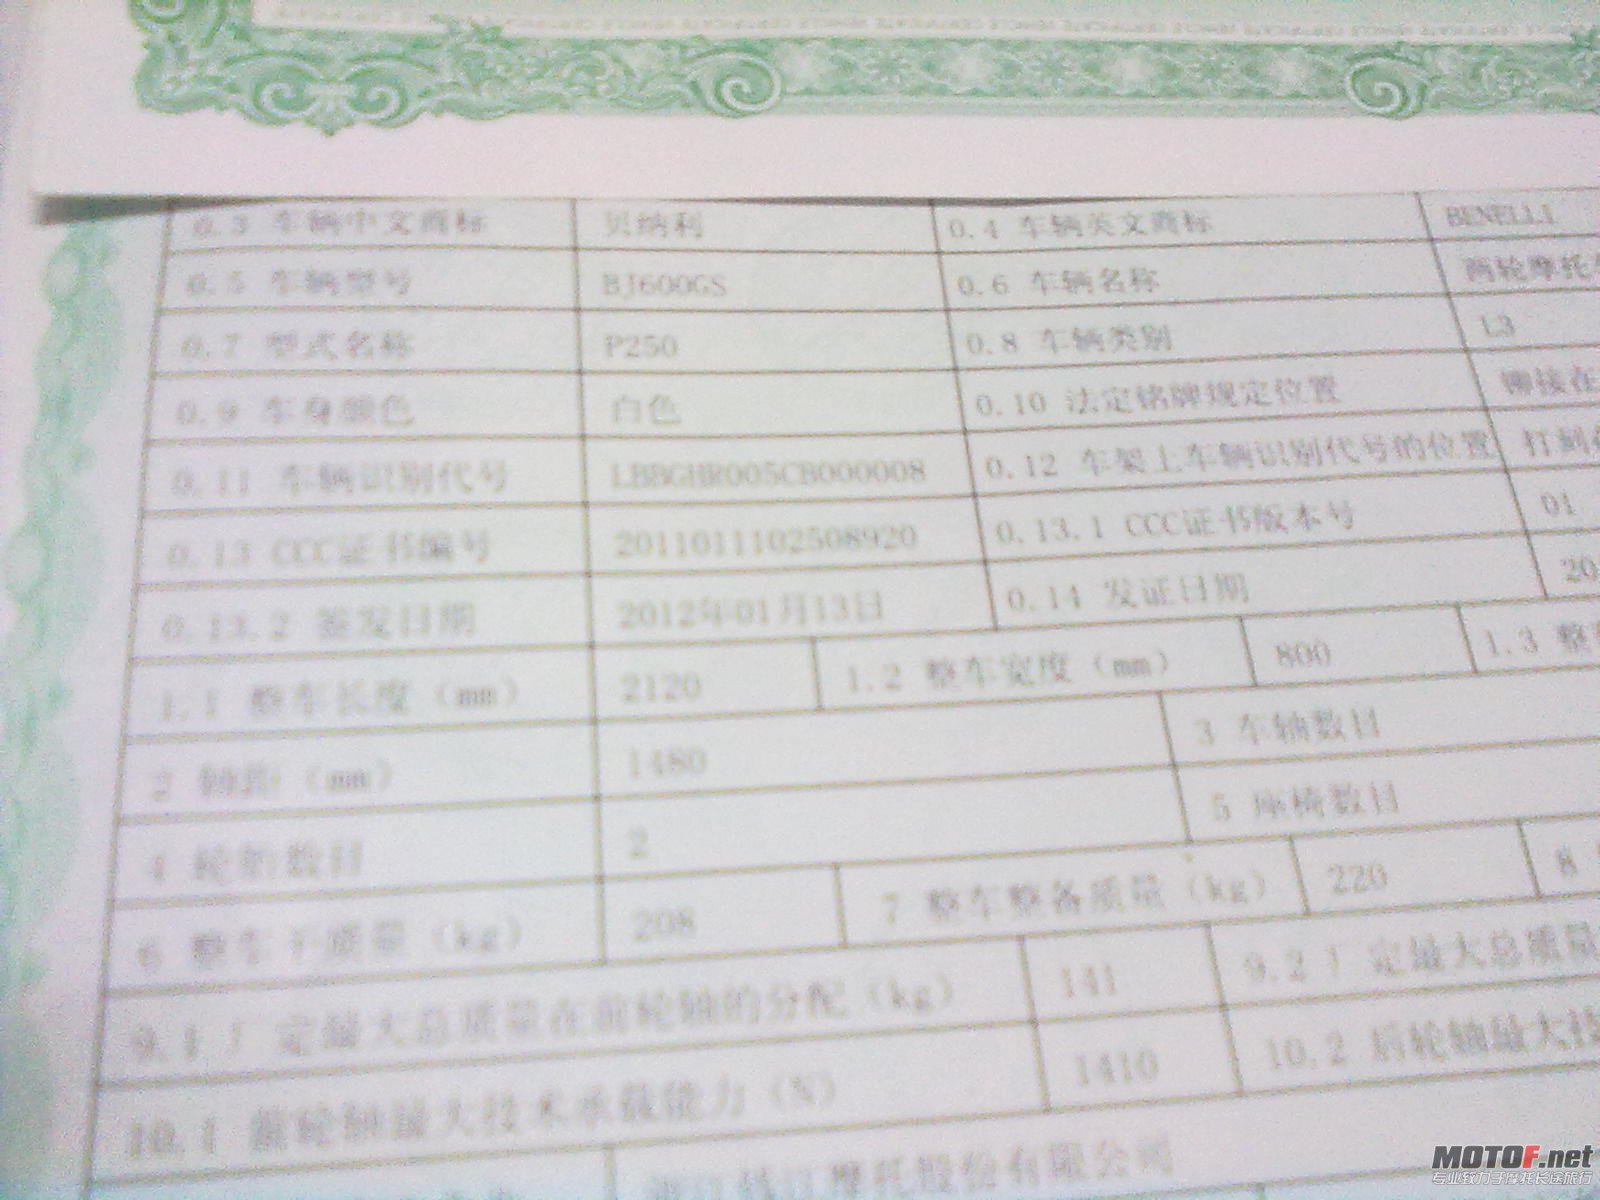 CERTIFICATE VEHICLE CERTIFICATE VEHICLE CERTIFICATE VEHICLE CERTIFICATE
0.3 车辆中文商标 贝纳利 0.4 车辆英文商标 BENELLI
0.5 车辆型号 BJ600GS 0.6 车辆名称 两轮摩托
0.7 型式名称 P250 0.8 车辆类别 L3
0.9 车身颜色 白色 0.10 法定铭牌规定位置 铆接在
0.11 车辆识别代号 LBBGHR005CB000008 0.12 车架上车辆识别代号的位置 打刻在
0.13 CCC证书编号 2011011102508920 0.13.1 CCC证书版本号 01
0.13.2 签发日期 2012年01月13日 0.14 发证日期 20
1.1 整车长度（mm） 2120 1.2 整车宽度（mm） 800 1.3 整
2 轴距（mm） 1480 3 车轴数目
4 轮胎数目 2 5 座椅数目
6 整车干质量（kg） 208 7 整车整备质量（kg） 220 8
9.1 厂定最大总质量在前轮轴的分配（kg） 141 9.2 厂定最大总质量
10.1 前轮轴最大技术承载能力（N） 1410 10.2 后轮轴最大技
浙江钱江摩托股份有限公司
MOTOF.net
专业致力于摩托长途旅行